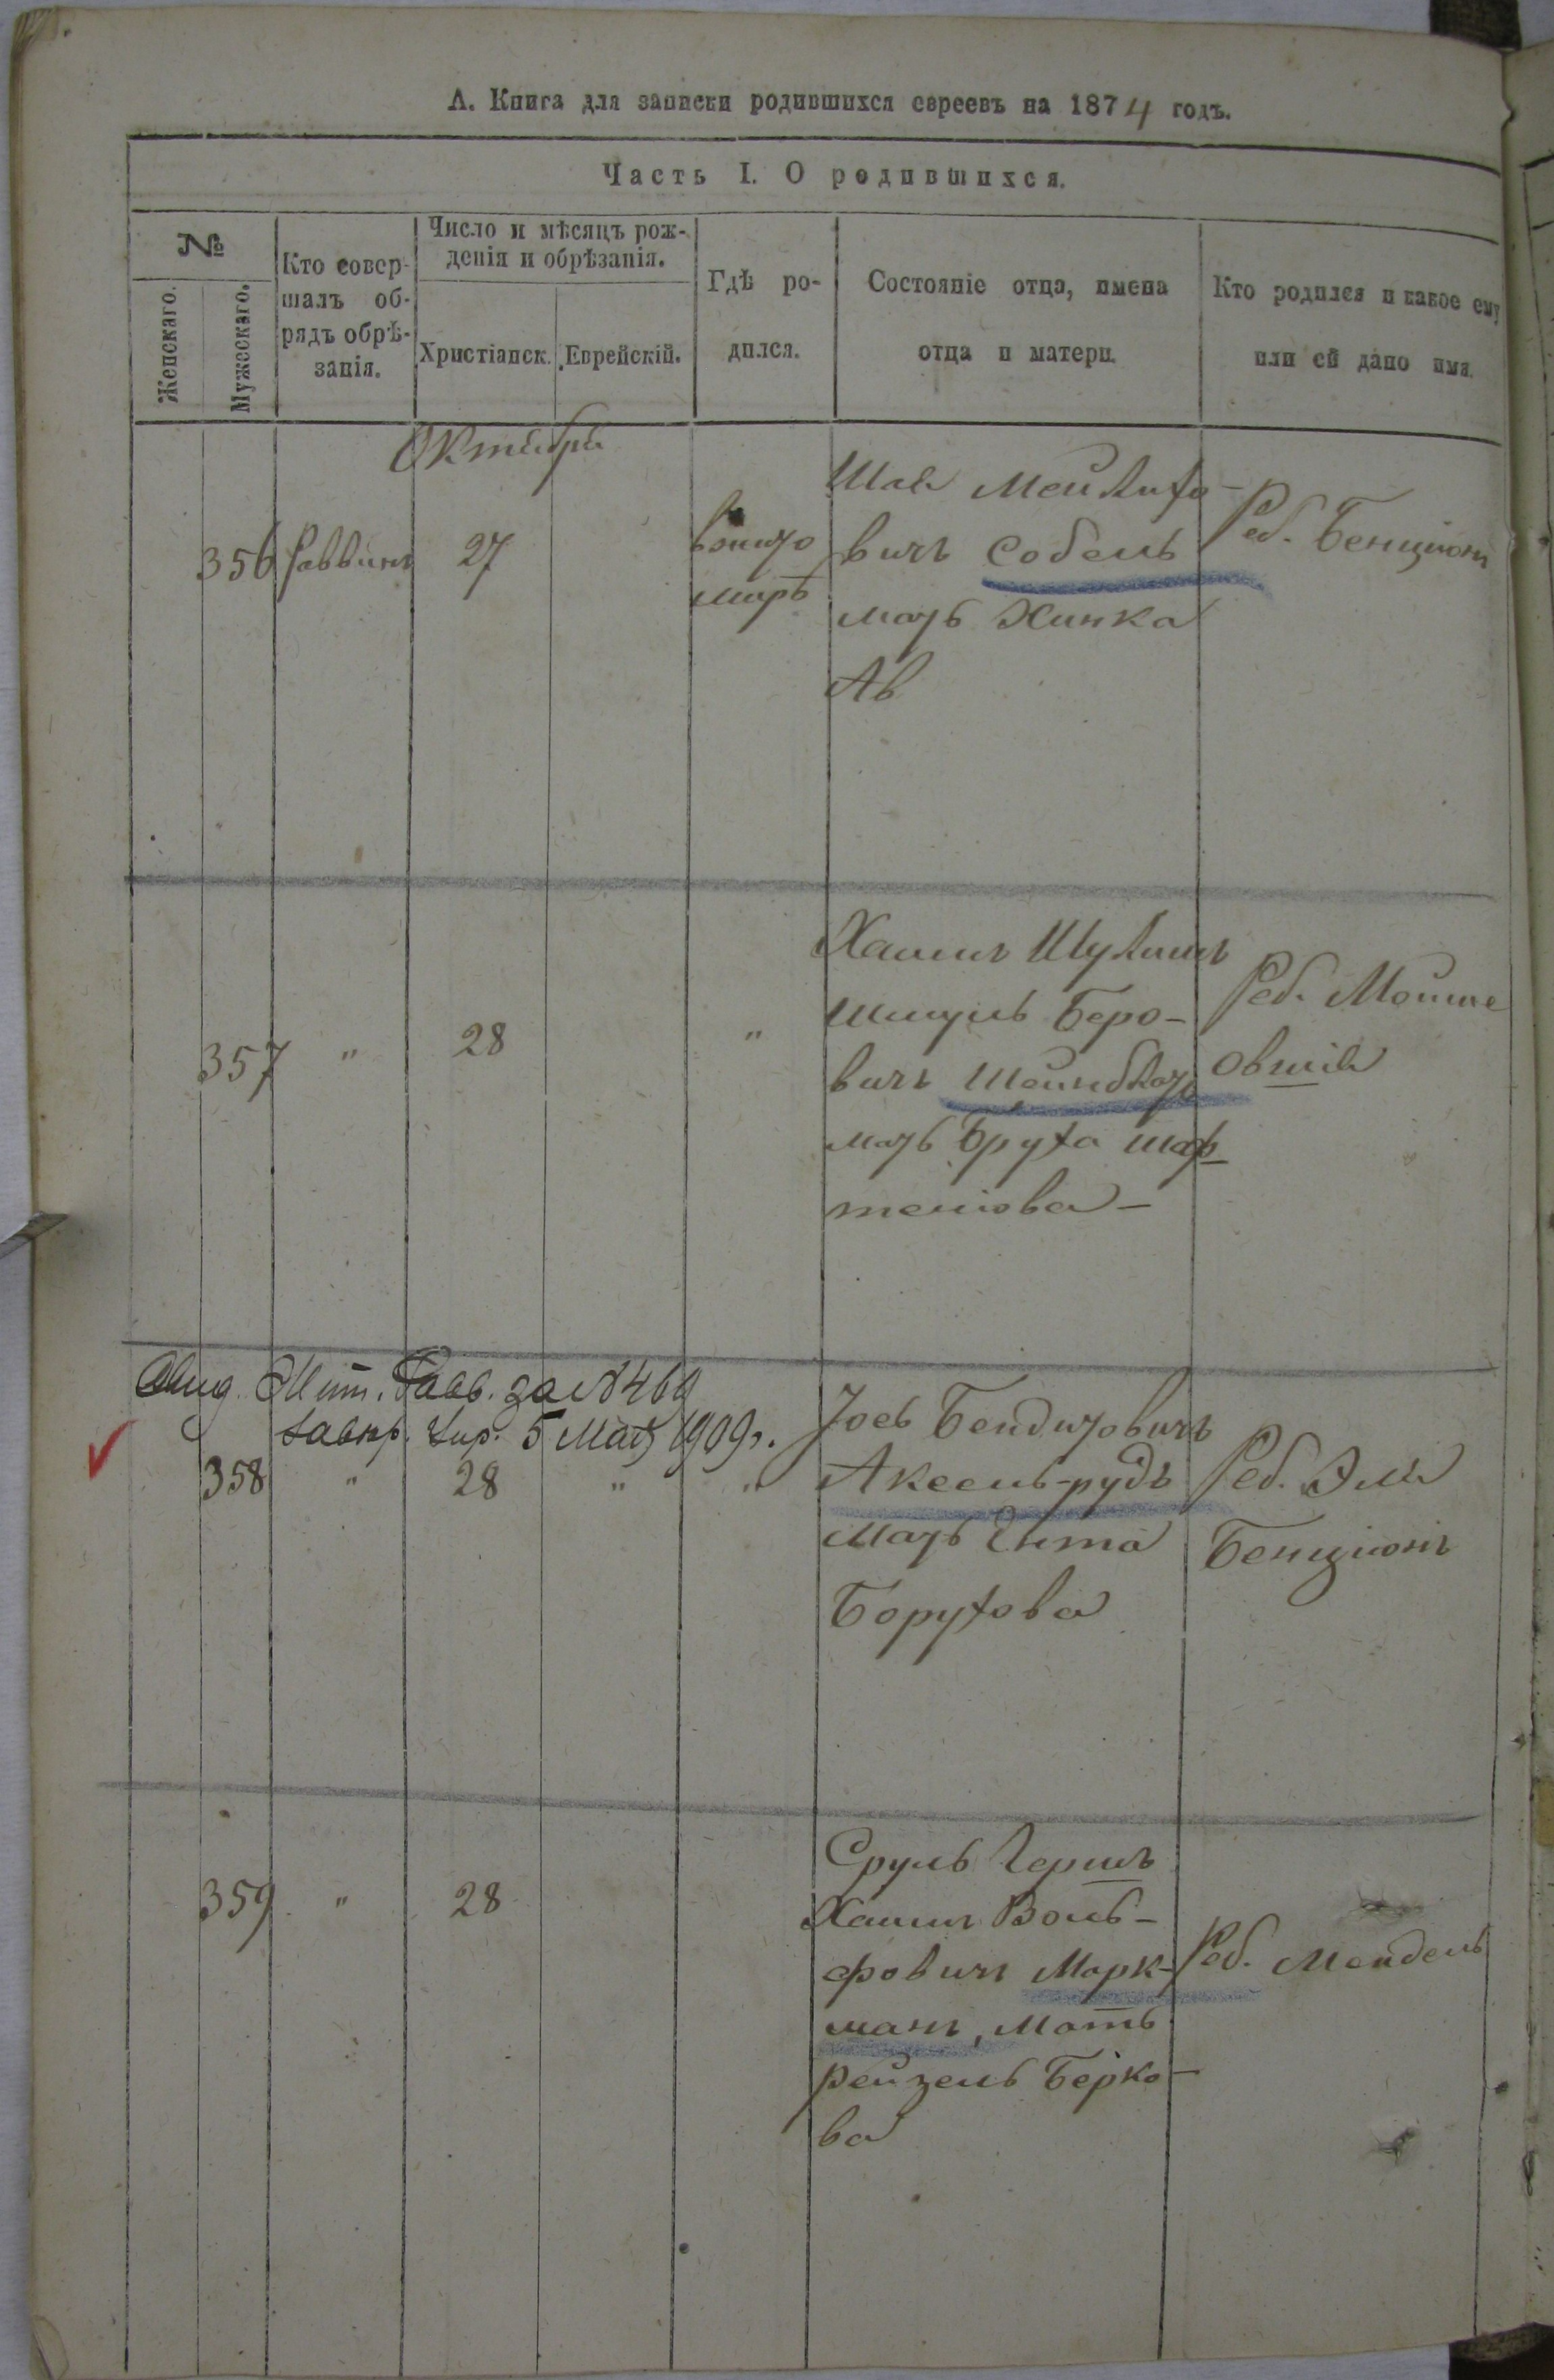 А. Книга для записки родившихся евреевъ на 1874 годъ.
Часть I. О родившихся.
№
Женскаго.
Мужескаго.
Кто совер-
шалъ об-
рядъ обрѣ-
занія.
Число и мѣсяцъ рож-
денія и обрѣзанія.
Христіанск.
Еврейскій.
Гдѣ ро-
дился.
Состояніе отца, имена
отца и матери.
Кто родился и какое ему
или ей дано имя.
Октября
356
Раввинъ
27
вжито
мирѣ
Шая
вичъ Собель
мать Хинка
Ав
Реб. Бенционъ
357
"
28
"
Хаимъ
Шмуль Беро-
вичъ
мать Бруха
Реб. Мойше
Овшія
Равв. за № 469
5 1909 г.
358
"
28
"
"
Аксель-рудъ
мать Ента
Борухова
Реб. Эля
Бенционъ
359
"
28
Сруль Гершъ
Хаимъ Воль-
фовичъ Марк-
манъ, Мать
Рейзель Берко-
ва
Реб. Мендель